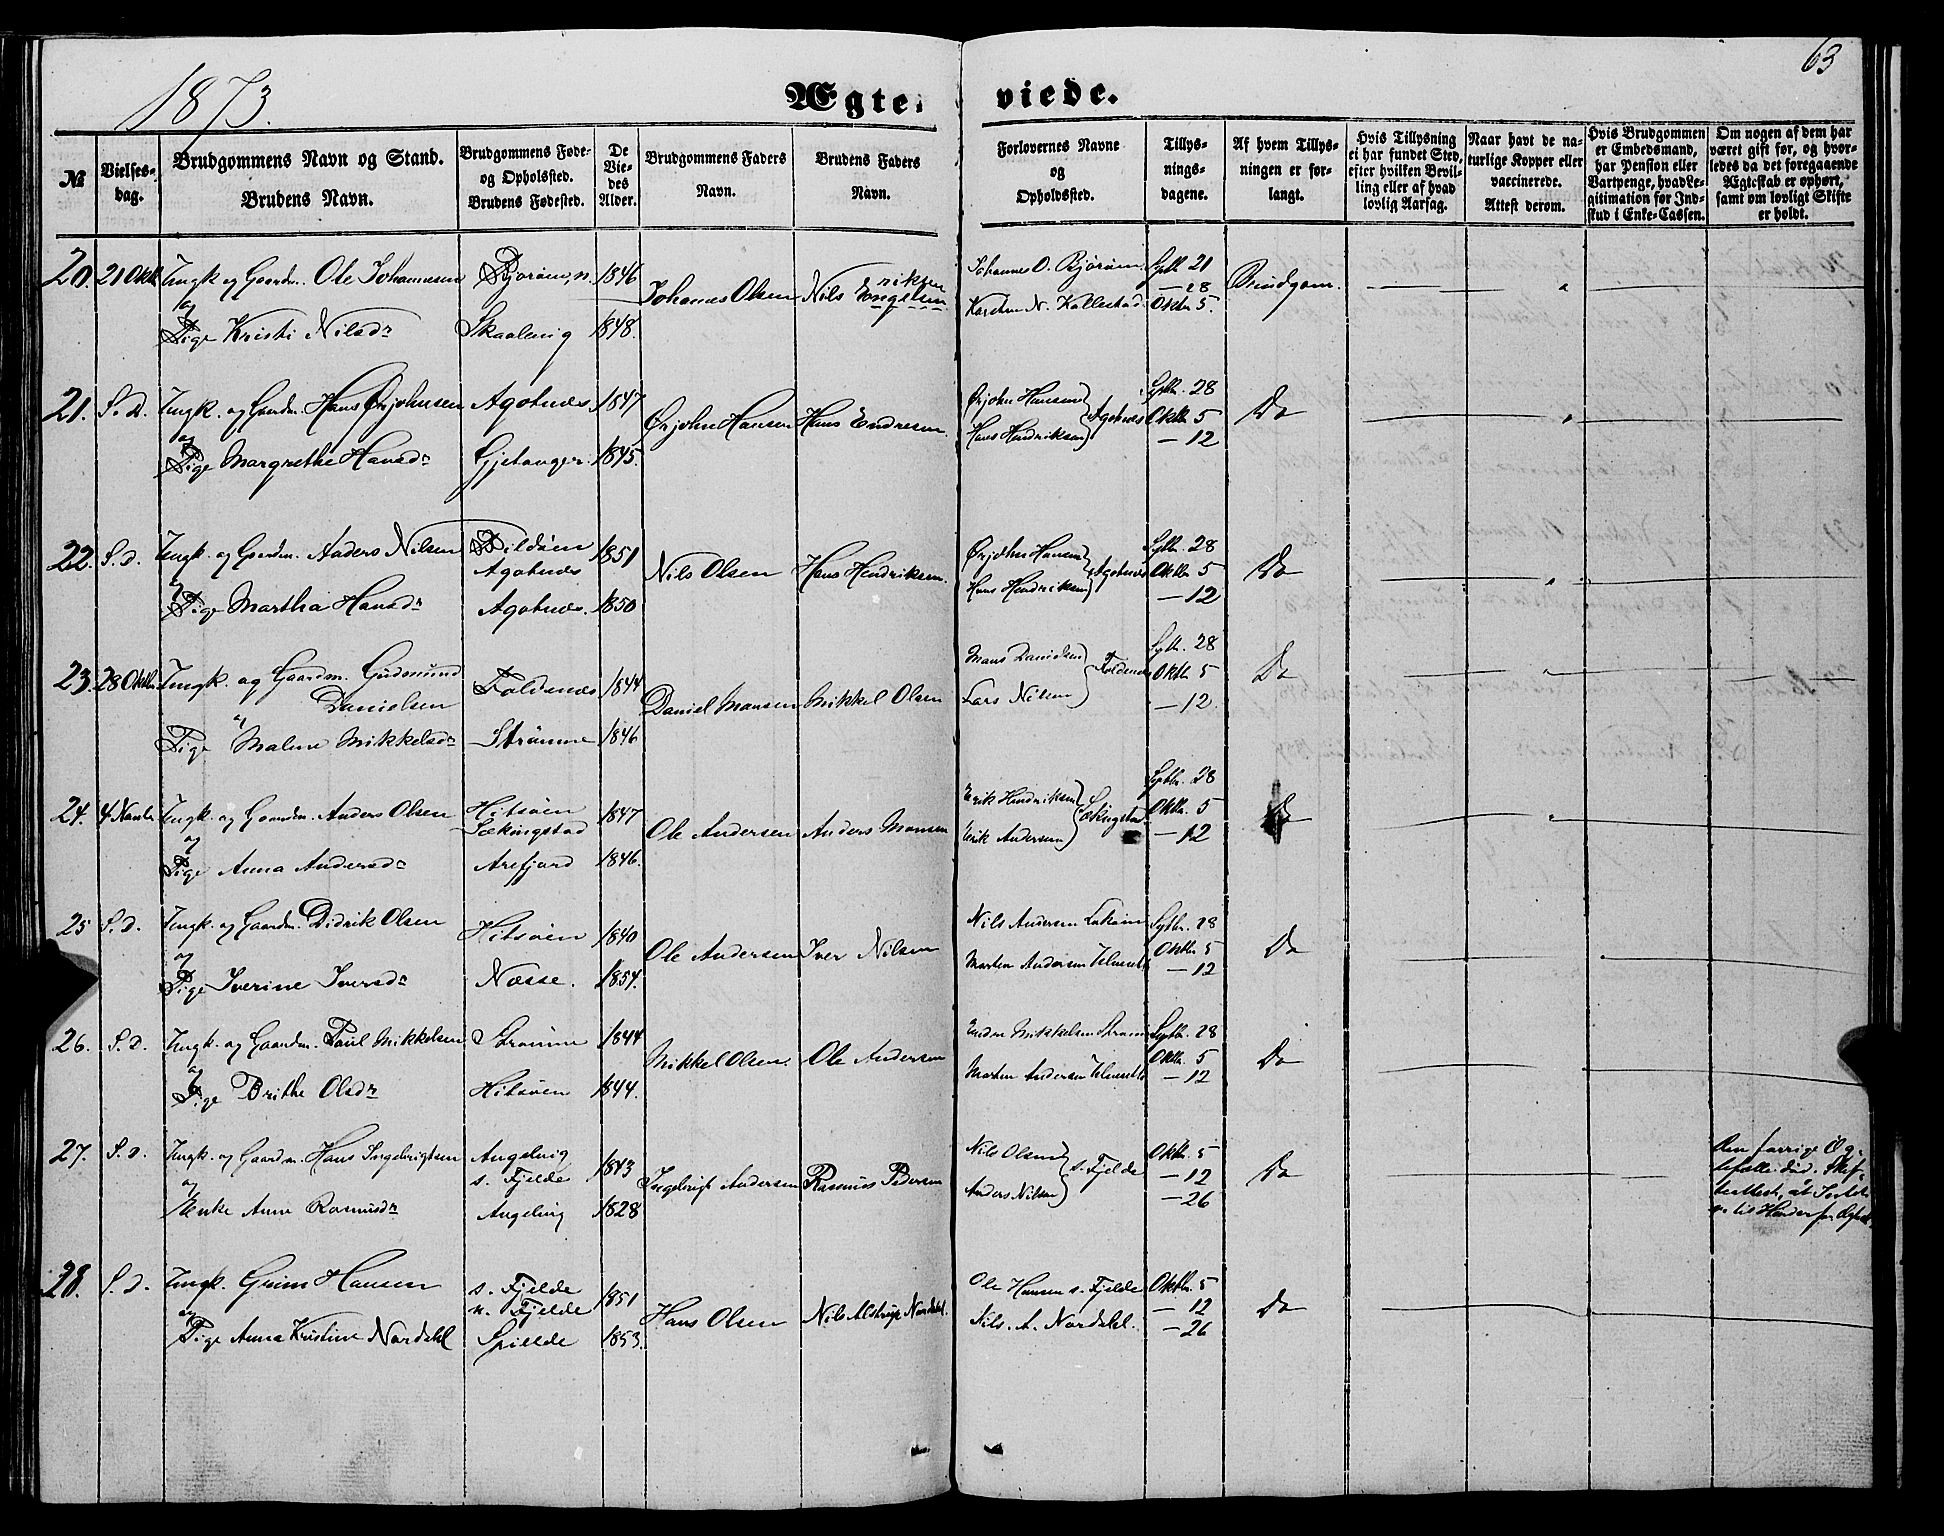 1873.
Ægteviede.
63
№
Vielses-dag.
Brudgommens Navn og Stand.
Brudens Navn.
Brudgommens Føde- og Opholdssted.
Brudens Fødested.
De Viedes Alder.
Brudgommens Faders Navn.
Brudens Faders Navn.
Forlovernes Navne og Opholdsted.
Tillysningsdagene.
Af hvem Tillysningen er forlangt.
Hvis Tillysning ei har fundet Sted, efter hvilken Bevilling eller af hvad lovlig Aarsag.
Naar havt de naturlige Kopper eller vaccinerede. Attest derom.
Hvis Brudgommen er Embedsmand, har Pension eller Vartpenge, hvad Legitimation for Indskud i Enke-Cassen.
Om nogen af dem har været gift før, og hvorledes da det foregaaende Ægteskab er ophørt, samt om lovligt Skifte er holdt.
20. 21 Oktb. Ungk. og Gaardm. Ole Johannesen Bjorøen, n. 1846 Johannes Olsen Nils Engelsen riksen Johannes O. Bjorøen Sptb 21
og — 28 Brudgom.
Pige Kristi Nilsdr Skaalevig 1848. Karsten N. Kallestad Oktbr 5.
21. S. D. Ungk. og Gaardm. Hans Ørjohnsen Agotnes 1847 Ørjohn Hansen Hans Endresen Ørjohn Hansen Agotnes Sptbr. 28
og Oktbr 5 Do
Pige Margrethe Hansdr Gjetanger. 1845. Hans Hendriksen — 12
22. S. D. Ungk. og Gaardm. Anders Nilsen Bildøen Agotnes 1851 Nils Olsen Hans Hendriksen Ørjohn Hansen Agotnes Sptbr. 28
og Oktbr 5 Do
Pige Martha Hansdr Agotnes. 1850 Hans Hendriksen — 12
23. 28 Oktbr Ungk. og Gaardm. Gudmund Danielsen Foldenæs 1844 Daniel Monsen Mikkel Olsen Mons Danielsen Foldenæs Sptbr. 28
og Oktbr 5 Do
Pige Malene Mikkelsdr Strømme 1846 Lars Nilsen — 12
24. 4 Novbr Ungk. og Gaardm. Anders Olsen Hitsøen Sækingstad 1847 Ole Andersen Anders Monsen Erik Hendriksen Sækingstad Sptbr. 28
og Oktbr. 5 Do
Pige Anna Andersdr Arefjord 1846. Erik Andersen — 12
25 S. D. Ungk. og Gaardm. Didrik Olsen Hitsøen 1840 Ole Andersen Iver Nilsen Nils Andersen Sptbr. 28
og Oktbr. 5 Do
Pige Iverine Iversdr Næsse. 1854. Morten Andersen — 12
26. S. D. Ungk. og Gaardm. Poul Mikkelsen Strømme 1844 Mikkel Olsen. Ole Andersen Endre Mikkelsen Strømme Sptbr. 28
og Oktbr. 5 Do
Pige Brithe Olsdr Hitsøen 1844. Morten Andersen — 12
27. S. D. Ungk. og Gaardm. Hans Ingebrigtsen Angelvig s. Fjelde 1843 Ingebrigt Andersen Rasmus Pedersen Nils Olsen s. Fjelde Oktbr. 5
og — 12 Do
Enke Anna Rasmusdr Angelvig 1828 Anders Nilsen — 26
28. S. D. Ungk. Grim Hansen s. Fjelde n. Fjelde 1851 Hans Olsen Nils Alstrup Nordahl. Ole Hansen s. Fjelde Oktbr. 5
og — 12 Do
Pige Anna Kristine Nordahl Spielde 1853. Nils. A. Nordahl. — 26